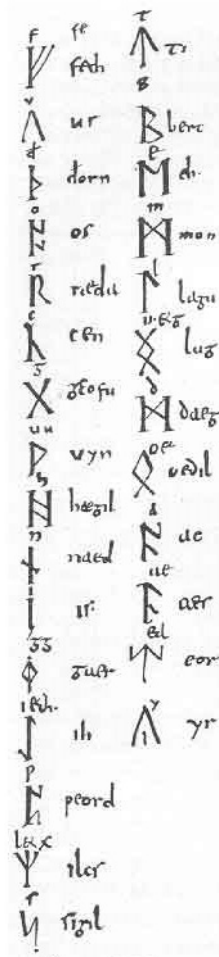 f fe
ᚠ fech
v
ᚢ ur
đ
ᚦ đorn
o
ᚩ os
r
ᚱ ræda
c
ᚳ cen
g
ᚷ geofu
uu
ᚹ uyn
h
ᚻ hægil
n
ᚾ naed
i
ᛁ is
gg
ᛄ gaer
ᛇ ih
p
ᛈ peord
l & x
ᛉ ilcs
s
ᛋ sigil
t
ᛏ ti
b
ᛒ berc
e
ᛖ eh
m
ᛗ mon
l
ᛚ lagu
n & g
ᛝ lug
d
ᛞ daeg
oe
ᛟ oedil
a
ᚪ ac
ae
ᚫ aes
ea
ᛠ eor
y
ᚣ yr